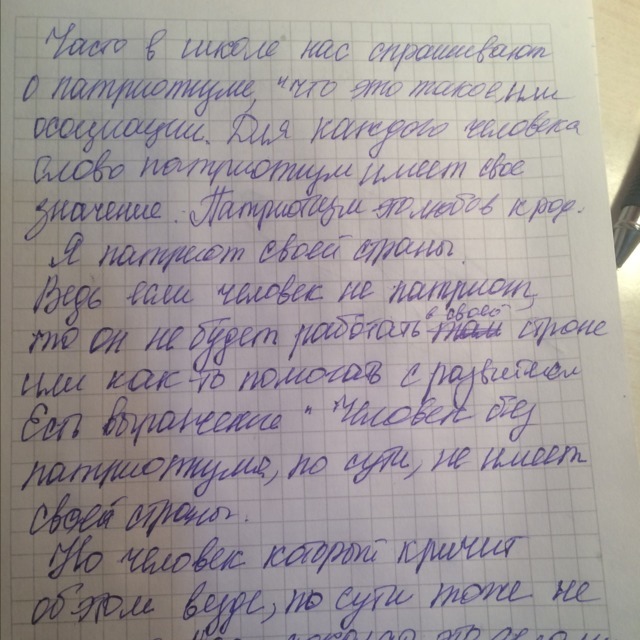 Часто в школе нас спрашивают
о патриотизме, "что это такое, или
осоциации. Для каждого человека
слово патриотизм имеет свое
значение. Патриотизм это любов к род.
Я патриот своей страны.
Ведь если человек не патриот,
то он не будет работать в своей стране
или как-то помогать с развитием
Есть выражение "Человек без
патриотизма, по сути, не имеет
своей страны.
Но человек который кричит
об этом везде, по сути тоже не